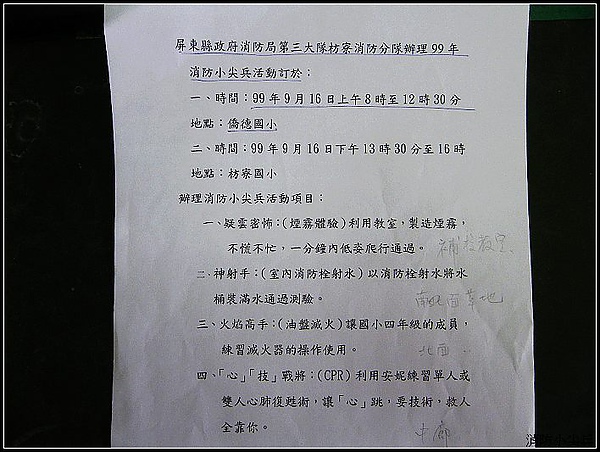 屏東縣政府消防局第三大隊枋寮消防分隊辦理99年
消防小尖兵活動訂於：
一、時間：99年9月16日上午8時至12時30分
地點：僑德國小
二、時間：99年9月16日下午13時30分至16時
地點：枋寮國小
辦理消防小尖兵活動項目：
一、疑雲密怖：(煙霧體驗)利用教室，製造煙霧，
不慌不忙，一分鐘內低姿爬行通過。
補校教室
二、神射手：(室內消防栓射水)以消防栓射水將水
桶裝滿水通過測驗。
草地
三、火焰高手：(油盤滅火)讓國小四年級的成員，
練習滅火器的操作使用。
北面
四、「心」「技」戰將：(CPR)利用安妮練習單人或
雙人心肺復甦術，讓「心」跳，要技術，救人
全靠你。
中廊